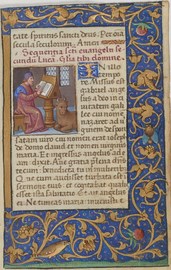 tate spiritus sancti deus. Per oīa
secula seculorum. Amen
Sequentia scti evangelii se-
cundū Lucā. Glīa tibi domine.
IN illo
tempo
re. Missus est
gabriel ange
lus a deo in ci
vitatem galilee
cui nomen na
zareth ad vir
ginem despon
satam viro cui nomen erat ioseph
de domo david et nomen virginis
maria. Et ingressus angelus ad
eam dixit. Ave gratia plena dñs
tecum: benedicta tu in mulieribus
Que cum audisset turbata est in
sermone eius: et cogitabat qualis
esset ista salutatio. Et ait angelus
ei. Ne timeas maria invenisti